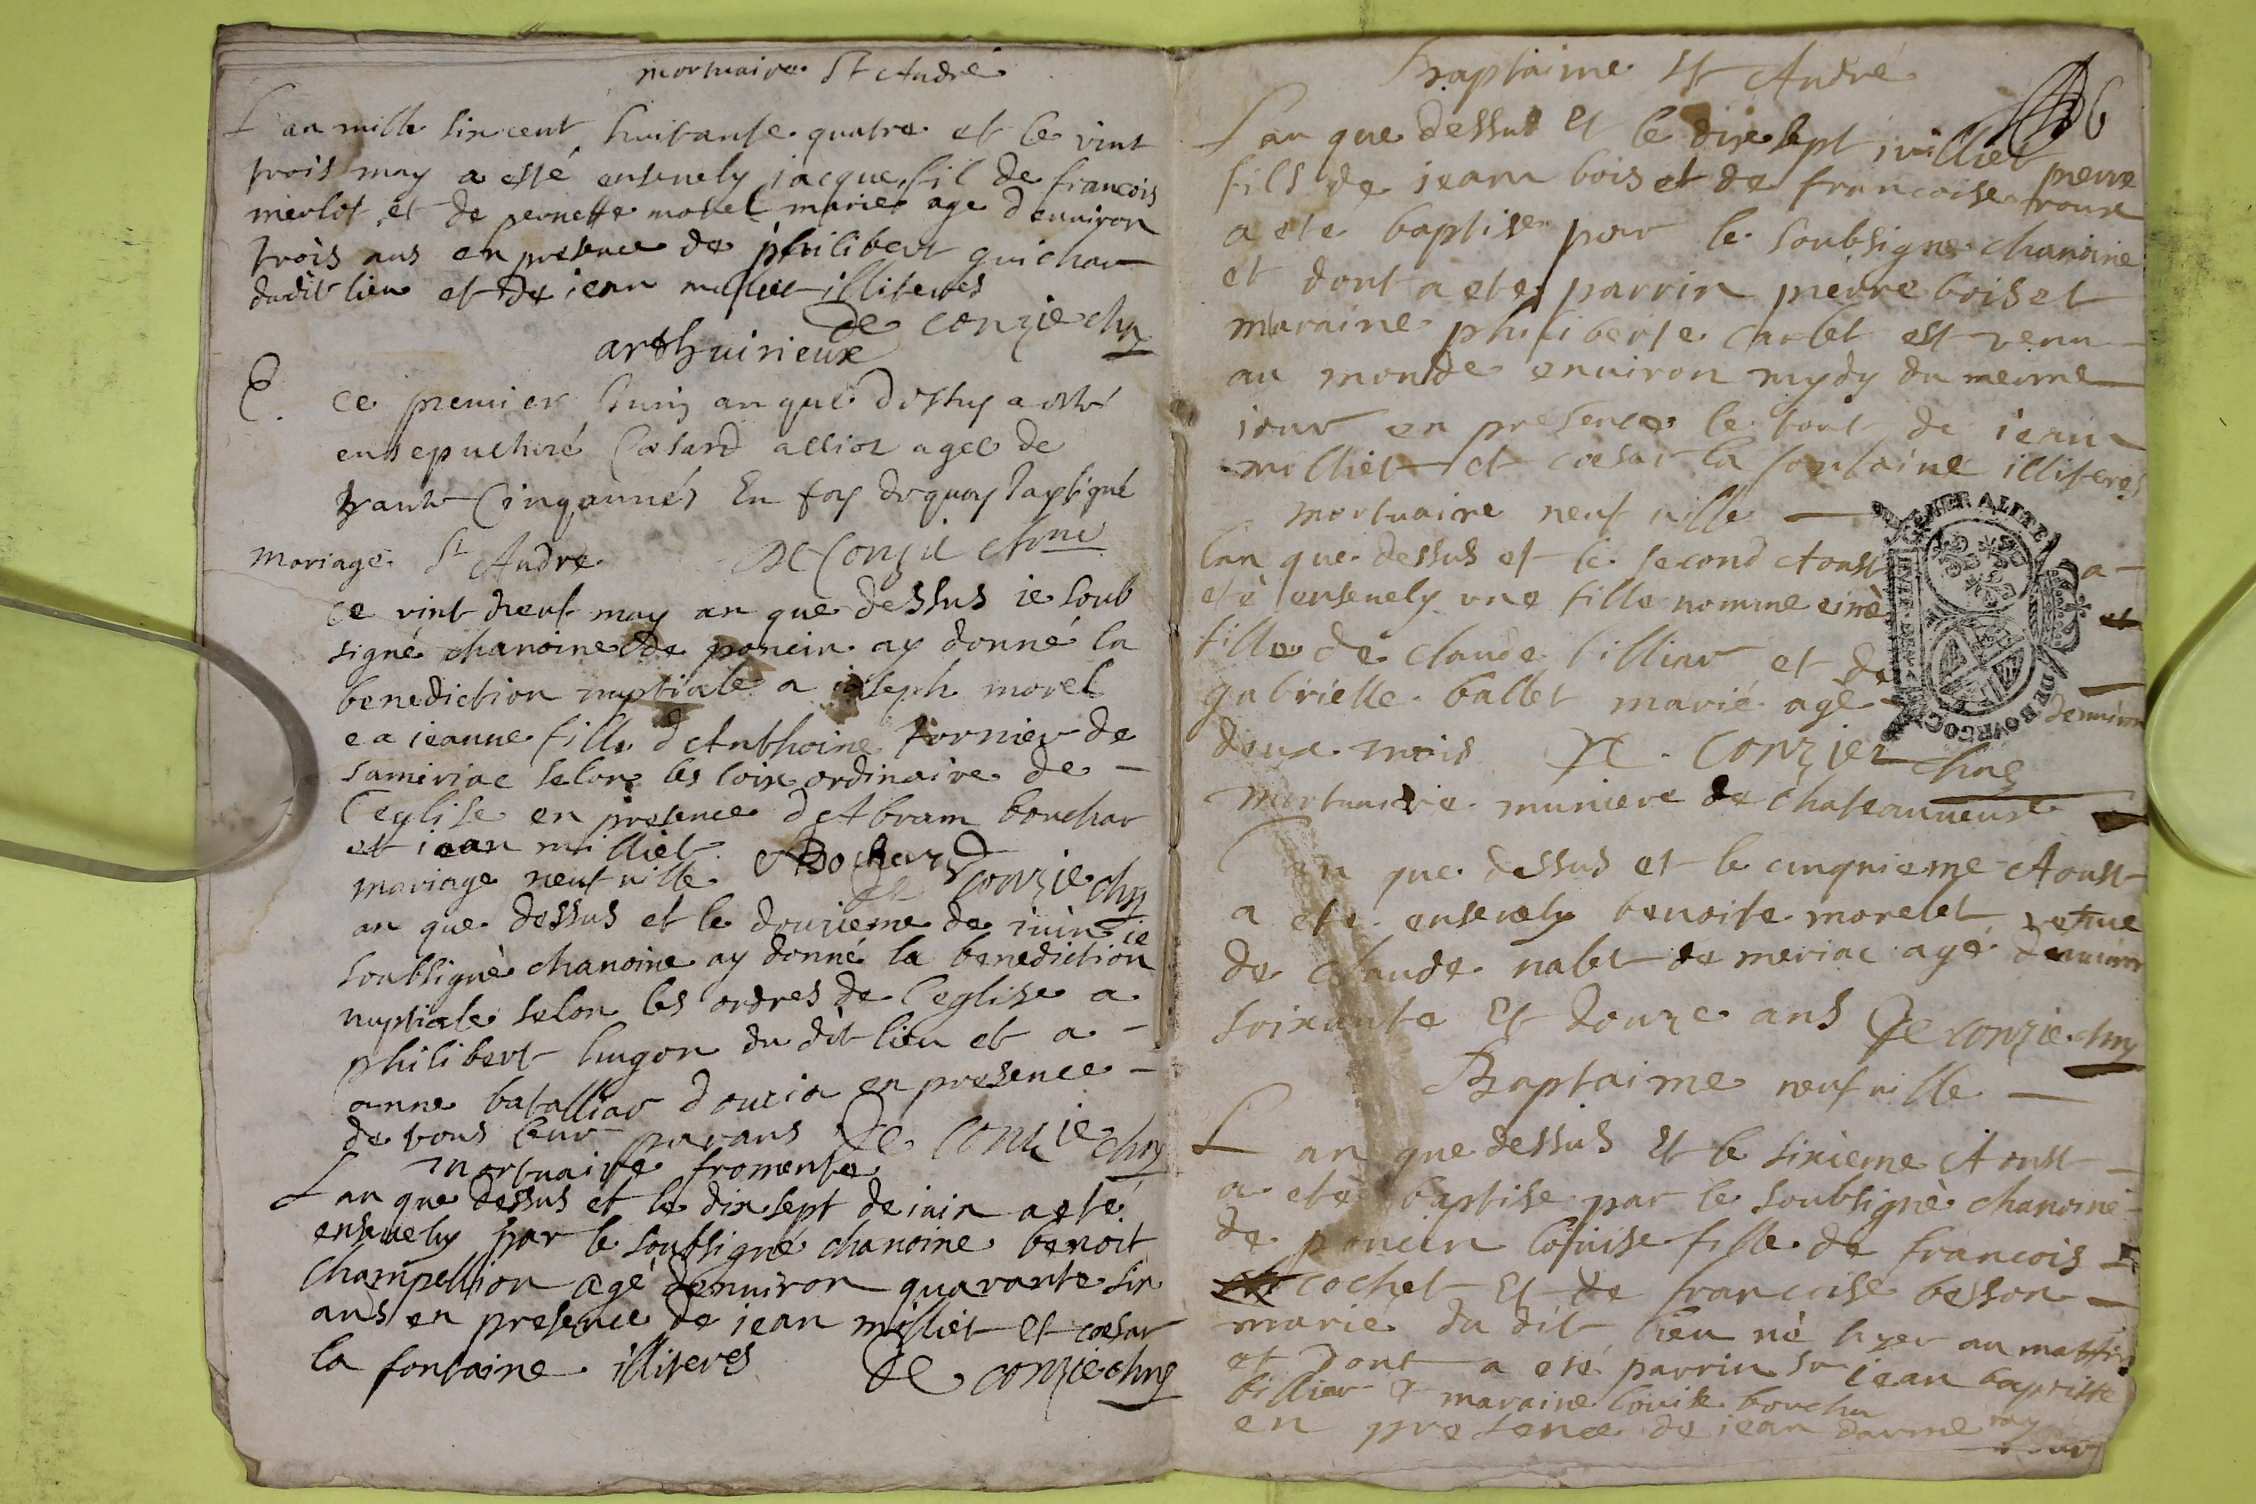 mortuaire St Andre
L an mille six cent huitante quatre et le vint
trois may a esté ensevely jacque fil de francois
merlot et de pernette morel mariés age denviron
trois ans en presence de philibert guichar
dudit lieu et de jean milliet illiteres
De conzie chn
arthuirieux
ce premier Juin an que dessus a esté
ensepulturé Cæsard alliot agee de
trante Cinq années En foy dequoy Jay signé
De Conzié chne
mariage St Andre
ce vint neuf may an que dessus ie soub
signé chanoine de poncin ay donné la
benediction nuptiale a ioseph morel
e a ieanne fille d Anthoine fornier de
sameriac selon les loix ordinaire de
l eglise en presence d Abram bouchar
et iean milliet ABochard
mariage neufville De Conzie chn
an que dessus et le douzieme de iuin ie
soubsignè chanoine ay donné la benediction
nuptiale selon les ordres de l eglise a
philibert hugon du dit lieu et a
anne batalliar d en presence
de tous leur parans De Conzie chn
mortuaire fromente
L an que dessus et le dix sept de iuin a eté
ensevely par le soubsigné chanoine benoit
champellion agé denviron quarante six
ans en presence de iean milliet et cæsar
la fontaine illiteres De conzie chn
Baptaime St André
L an que dessus et le dix sept iuilliet pierre
fils de iean boiset de francoise roux
a ete baptise par le soubsigne chanoine
et dont a ete parrin pierre boiset
maraine philiberte carlet est venu
au monde environ mydy du meme
iour en presence le tout de iean
milliet et cæsar la fontaine illiteres
mortuaire neuf ville
lan que dessus et le second Aoust a
eté ensevely une fille nomme
fille de claude billiar et de
gabrielle ballet marié agé denviron
deux mois De Conzier chne
mortuaire muniere de chateauneuf
L an que dessus et le cinquieme Aoust
a ete ensevely benoite morelet vefue
de claude nalet de meriac agé denviron
soixante et douze ans De conzie chn
Baptaime neufville
L an que dessus et le sixieme Aoust
a eté baptise par le soubsigné chanoine
de poncin louise fille de francois
cochet et de francoise besson
marié du dit lieu né hyer au mattin
et dont a eté parrin sr iean baptiste
billiar & maraine louise bouchu
en presence de iean darme